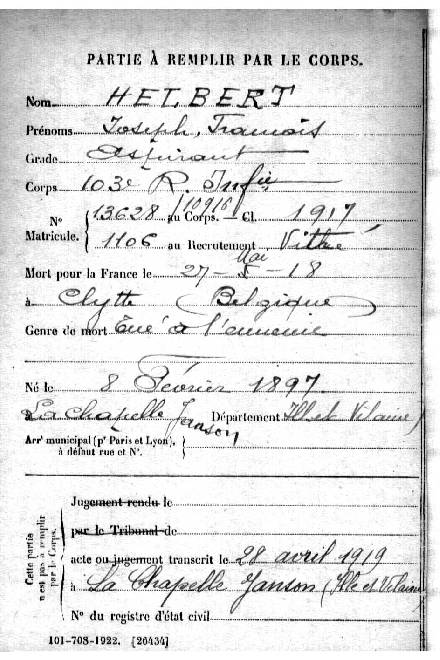 PARTIE À REMPLIR PAR LE CORPS.
Nom HELBERT
Prénoms Joseph, François
Grade Aspirant
Corps 103e R. Infie
N° Matricule. 13628 /10916 au Corps. Cl. 1917
1106 au Recrutement Vitré
Mort pour la France le 27 - Mai - 18
à Clytte (Belgique)
Genre de mort Tué à l'ennemi
Né le 8 Février 1897
La Chapelle Janson Département Ille et Vilaine
Arrt municipal (pr Paris et Lyon),
à défaut rue et N°.
Cette partie n'est pas à remplir par le Corps.
Jugement rendu le
par le Tribunal de
acte ou jugement transcrit le 28 avril 1919
à La Chapelle Janson (Ille et Vilaine)
N° du registre d'état civil
101-708-1922. [26434]